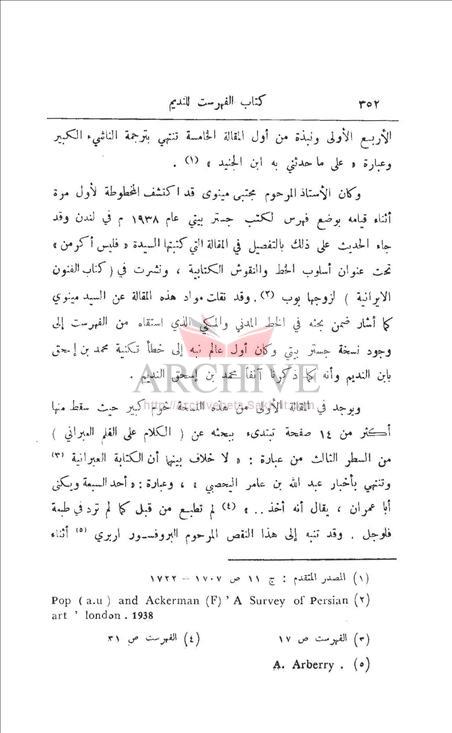 ٣٥٢ كتاب الفهرست للنديم
الأربع الأولى ونبذة من أول المقالة الخامسة تنتهي بترجمة الناشيء الكبير
وعبارة « على ما حدثني به ابن الجنيد » (١) .
وكان الأستاذ المرحوم مجتبى مينوى قد اكتشف المخطوطة لأول مرة
أثناء قيامه بوضع فهرس لكتب جستر بيتي عام ١٩٣٨ م في لندن وقد
جاء الحديث على ذلك بالتفصيل في المقالة التي كتبتها السيدة « فليس أكرمن »
تحت عنوان أسلوب الخط والنقوش الكتابية ، ونشرت في ( كتاب الفنون
الايرانية ) لزوجها بوب (٢) . وقد نقلت مواد هذه المقالة عن السيد مينوي
كما أشار ضمن بحثه في الخط المدني والمكي الذي استقاه من الفهرست إلى
وجود نسخة جستر بيتي وكان أول عالم نبه إلى خطأ تكنية محمد بن إسحق
بابن النديم وأنه كما ذكرنا آنفاً محمد بن إسحق النديم .
ARCHIVE
ويوجد في المقالة الأولى من هذه النسخة خرم كبير حيث سقط منها
أكثر من ١٤ صفحة تبتدىء ببحثه عن ( الكلام على القلم العبراني )
من السطر الثالث من عبارة : « لا خلاف بينها أن الكتابة العبرانية (٣)
وتنتهي بأخبار عبد الله بن عامر اليحصبي » ، وعبارة : « أحد السبعة ويكنى
أبا عمران ، يقال أنه أخذ .. » (٤) لم تطبع من قبل كما لم ترد في طبعة
فلوجل . وقد تنبه إلى هذا النقص المرحوم البروفسور اربري (٥) أثناء
(١) المصدر المتقدم : ج ١١ ص ١٧٠٧ - ١٧٢٢
Pop ( a.u ) and Ackerman (F) ' A Survey of Persian (٢)
art ' london . 1938
(٣) الفهرست ص ١٧ (٤) الفهرست ص ٣١
A. Arberry . (٥)